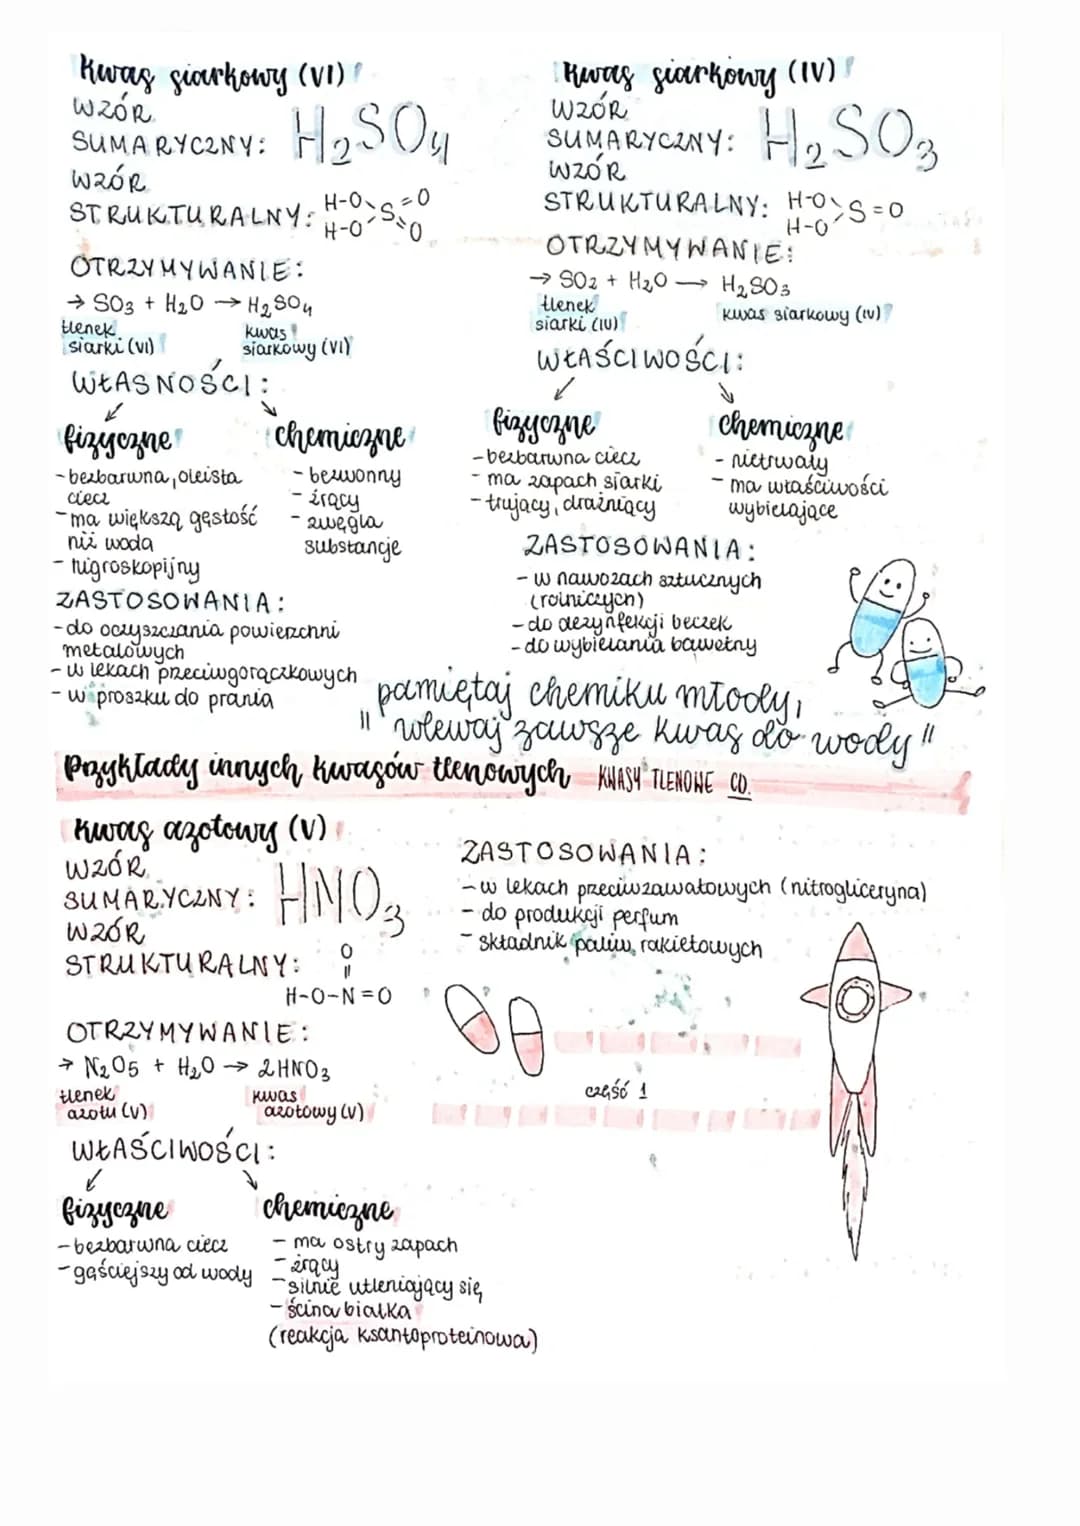 Kwas siarkowy (VI)
WZÓR
SUMARYCZNY: H₂SO₄
WZÓR
STRUKTURALNY:
H-O S=O
H-O O
OTRZYMYWANIE:
→ SO₃ + H₂O → H₂SO₄
tlenek kwas
siarki (VI) siarkowy (VI)
WŁASNOŚCI:
fizyczne
- bezbarwna, oleista
ciecz
- ma większą gęstość
niż woda
- higroskopijny
chemiczne
- bezwonny
- żrący
- zwęgla
substancje
ZASTOSOWANIA:
- do oczyszczania powierzchni
metalowych
- w lekach przeciwgorączkowych
- w proszku do prania
Kwas siarkowy (IV)
WZÓR
SUMARYCZNY: H₂SO₃
WZÓR
STRUKTURALNY:
H-O S=O
H-O
OTRZYMYWANIE:
→ SO₂ + H₂O → H₂SO₃
tlenek
siarki (IV) kwas siarkowy (IV)
WŁAŚCIWOŚCI:
fizyczne
- bezbarwna ciecz
- ma zapach siarki
- trujący, drażniący
chemiczne
- nietrwały
- ma właściwości
wybielające
ZASTOSOWANIA:
- w nawozach sztucznych
(rolniczych)
- do dezynfekcji beczek
- do wybielania bawełny
pamiętaj chemiku młody,
" wlewaj zawsze kwas do wody "
Przykłady innych kwasów tlenowych KWASY TLENOWE CD.
Kwas azotowy (V)
WZÓR
SUMARYCZNY: HNO₃
WZÓR
STRUKTURALNY:
O
=
H-O-N=O
OTRZYMYWANIE:
→ N₂O₅ + H₂O → 2HNO₃
tlenek kwas
azotu (V) azotowy (V)
WŁAŚCIWOŚCI:
fizyczne
- bezbarwna ciecz
- gęściejszy od wody
chemiczne
- ma ostry zapach
- żrący
- silnie utleniający się
- ścina białka
(reakcja ksantoproteinowa)
ZASTOSOWANIA:
- w lekach przeciwzawałowych (nitrogliceryna)
- do produkcji perfum
- składnik paliw rakietowych
część 1